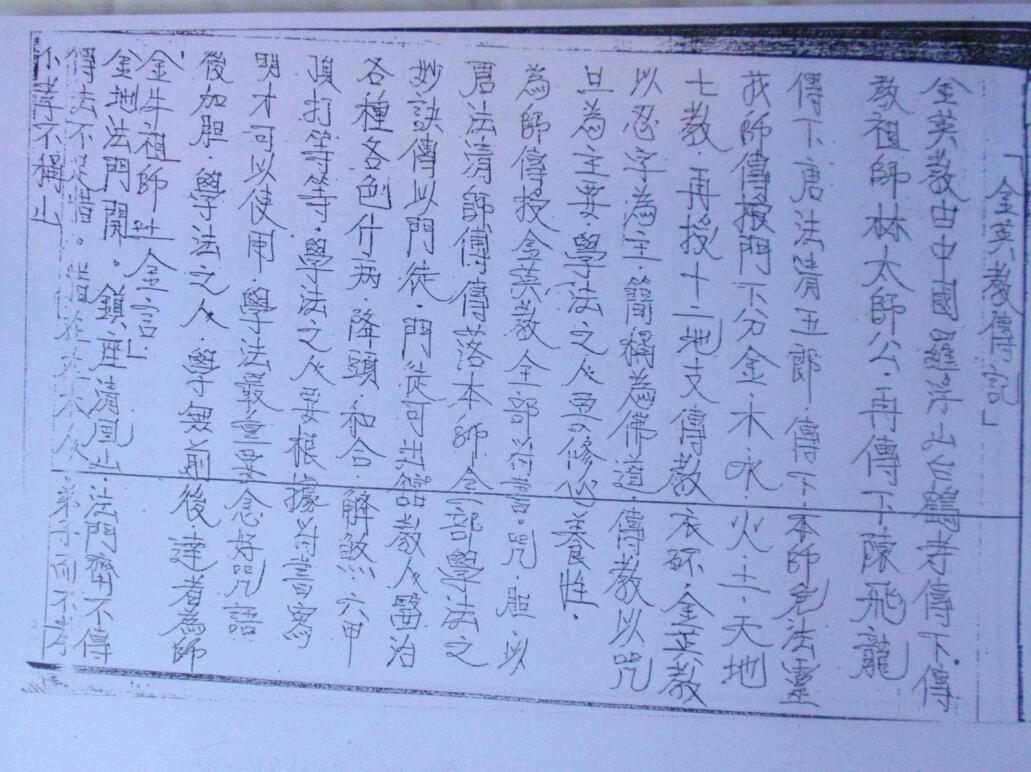 「金英教傳記」
金英教由中國羅浮山白鶴寺傳下傳
教祖師林太師公·再傳下陳飛龍
傳下唐法清五郎·傳下本師 法靈
我師傳授門下分金木水·火·土·天地
七教·再授十二地支傳教 ·金英教
以忍字為主·簡稱為佛道·傳教以咒
旦為主要·學法之人要修心養性·
為師傳授金英教全部符書。咒· 以
唐法清師傅傳落本師全部學法之
妙訣傳以門徒·門徒可出 教人醫治
各種各色什病·降頭·和合·解煞·六甲
頂打等等·學法之人要根據符書寫
明才可以使用學法最重要念好咒語
後加胆·學法之人·學無前後達者為師
金牛祖師 金言·」
金地法門開。鎮座清風 法門齊不傳
傳法不 惜。惜在
不孝不稱